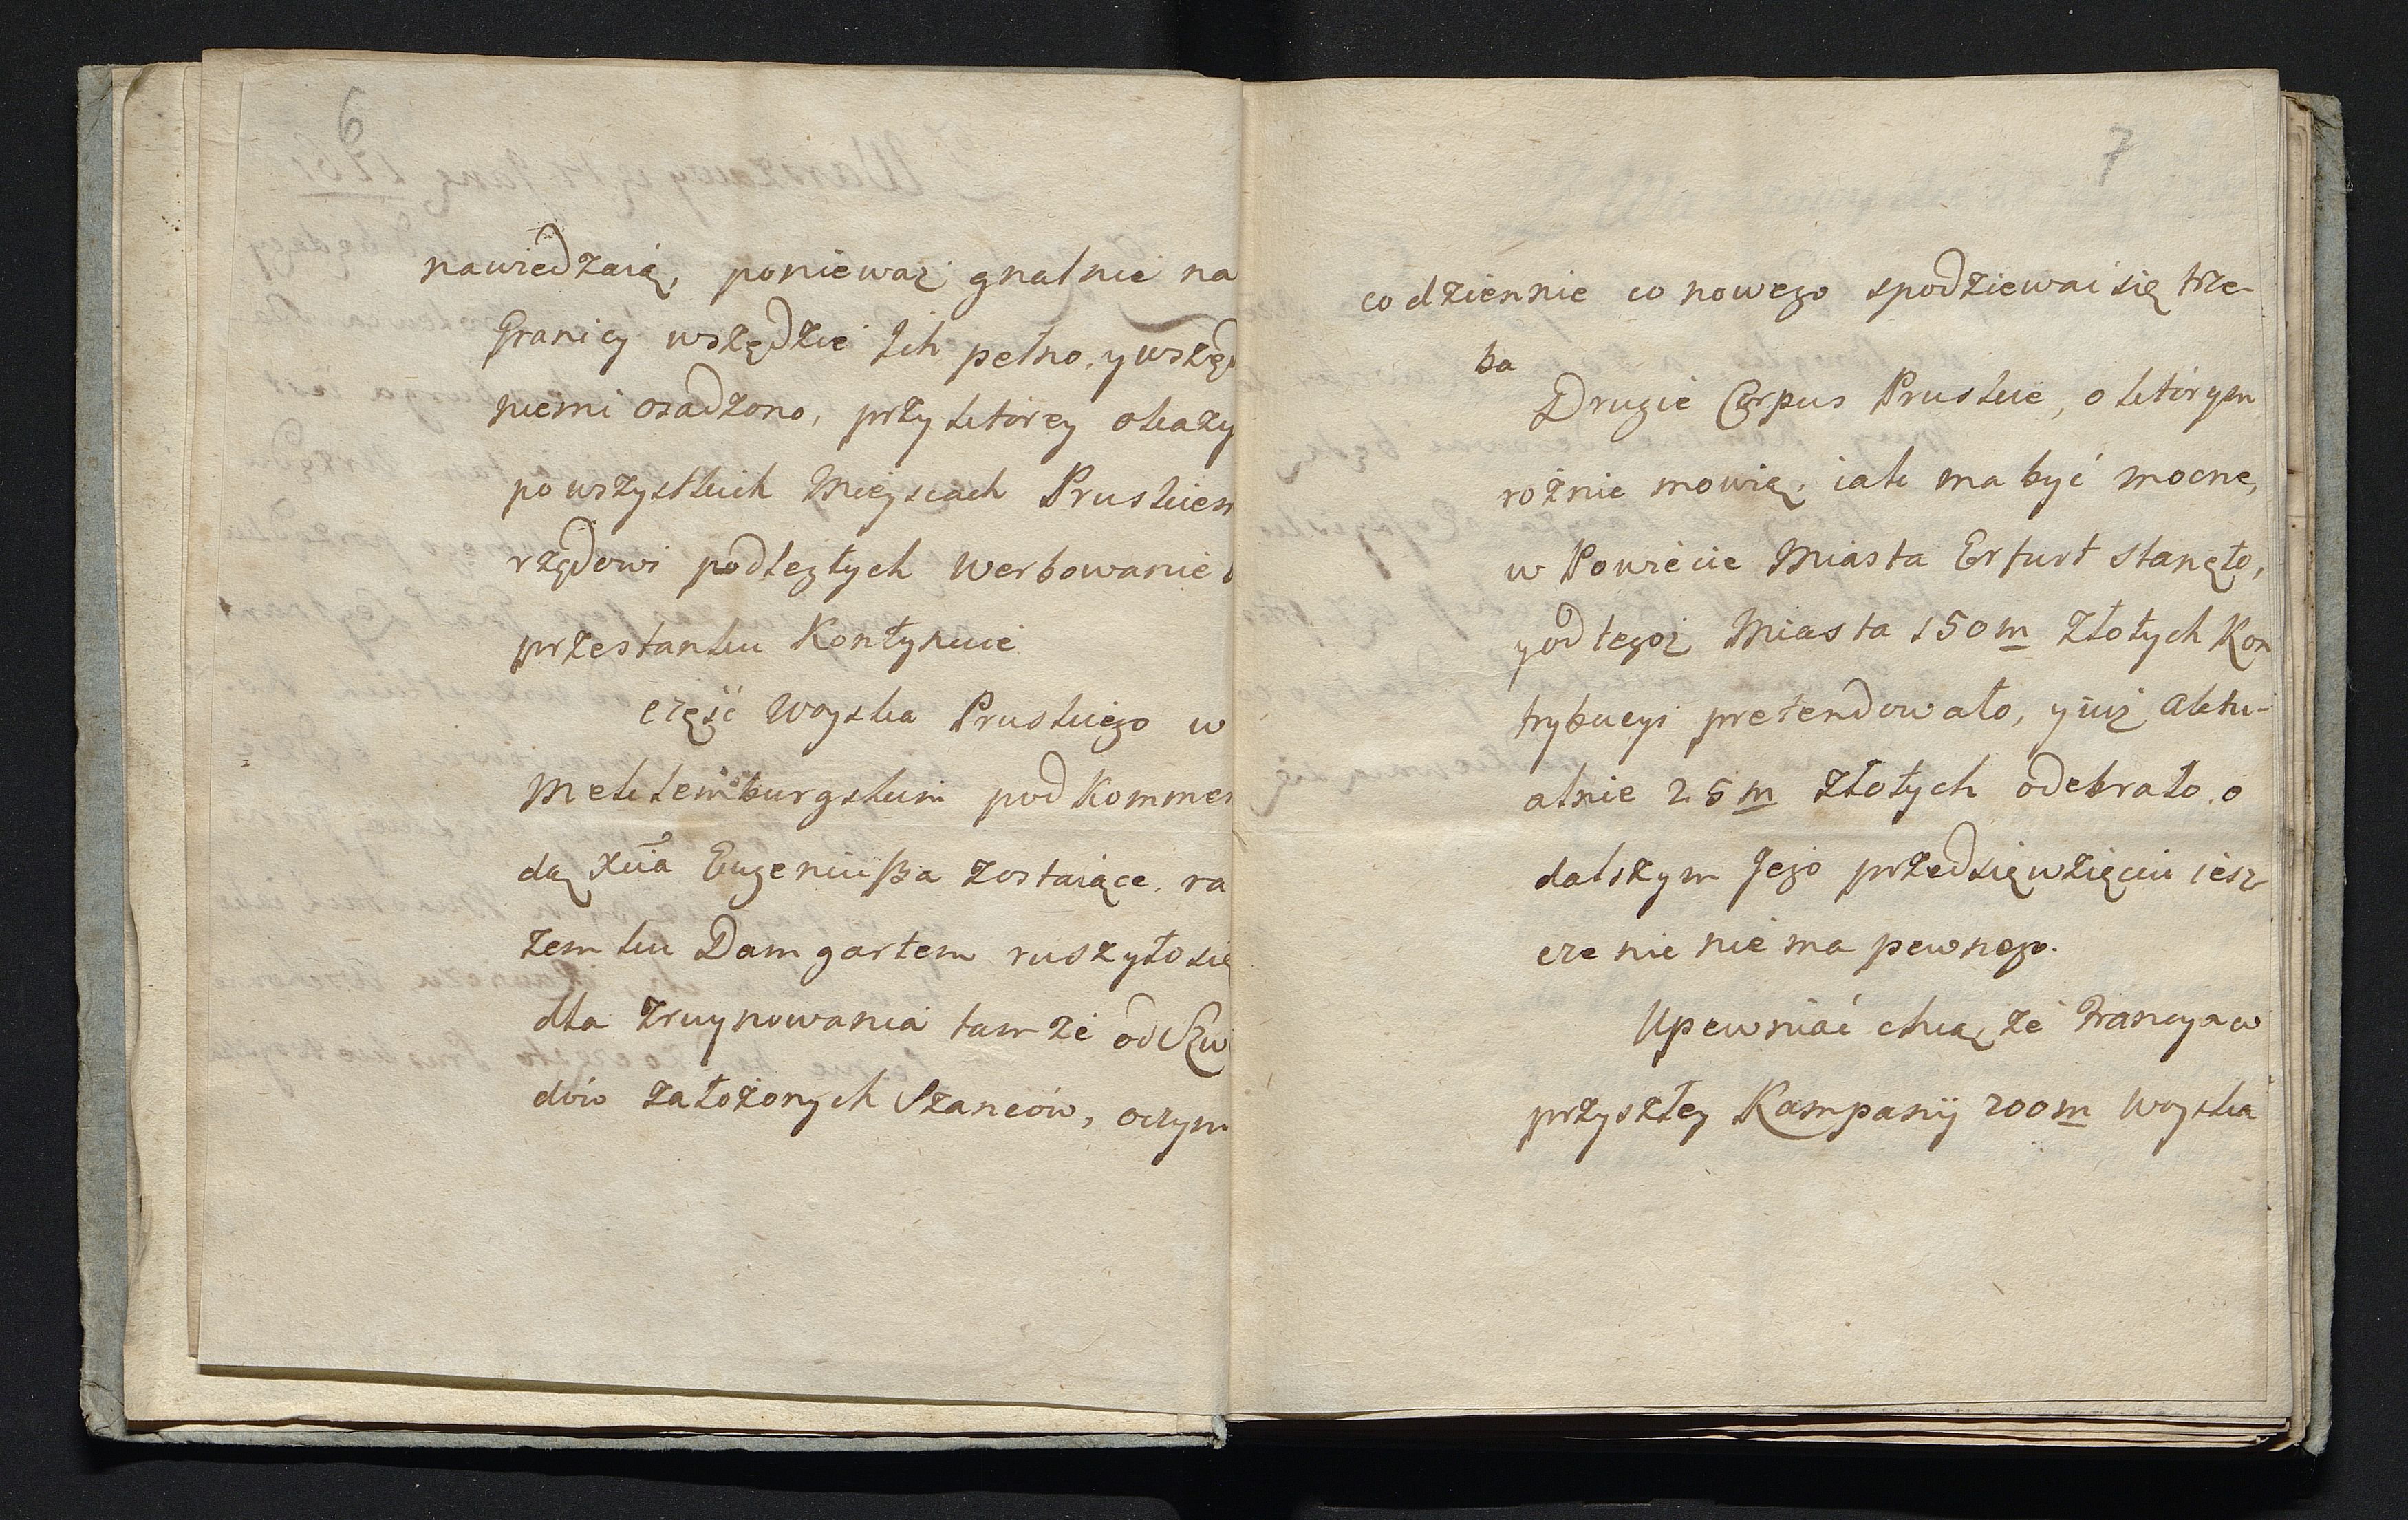 6
nawiedzaią, ponieważ gnalnie na
Granicy wszędzie Ich pełno, y wszę
niemi osadzono, przy ktorey okazy
po wszystkich Mieyscach Pruskiem
rządowi podległych werbowanie
przestanku Kontynuie
część Woyska Pruskiego w
Meklemburgskim pod Kommen
dą Xcia Eugeniußa zostaiące, ra
zem ku Damgartem ruszyło się
dla zruynowania tamże od Szw
dów założonych Szanców, oczym
7
codziennie co nowego spodziewać się trze-
ba
Drugie Corpus Pruskie, o ktorym
rożnie mowią, iak ma być mocne,
w Powiecie Miasta Erfurt stanęło,
y od tegoż Miasta 150m złotych Kon
trybucyi pretendowało, y iuż aktu-
alnie 25m złotych odebrało, o
dalszym Jego przedsięwzięciu iesz
cze nic nie ma pewnego.
Upewniać chcą, że Francya w
przyszłey Kampanij 200m Woyska